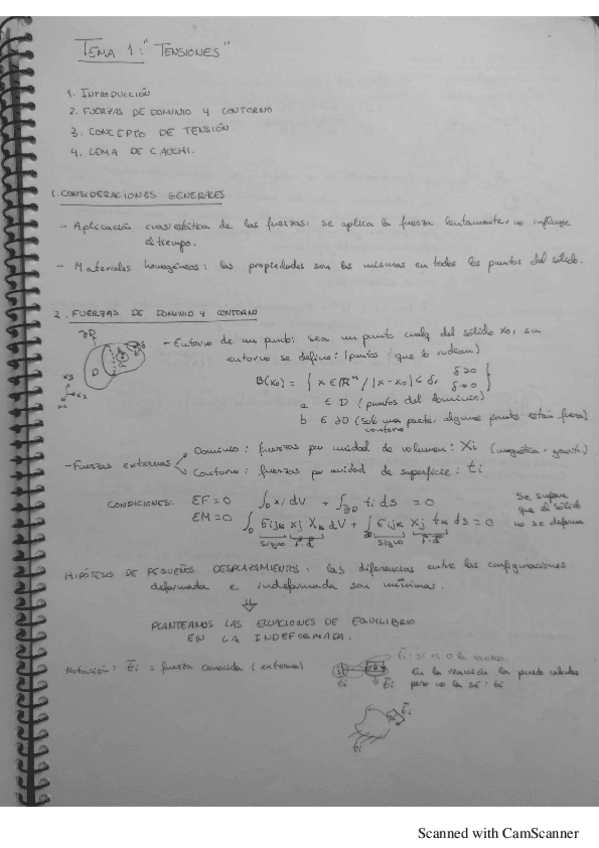 TEMA 1: "TENSIONES"
1. INTRODUCCIÓN
2. FUERZAS DE DOMINIO Y CONTORNO
3. CONCEPTO DE TENSIÓN
4. LEMA DE CAUCHI.
1. CONSIDERACIONES GENERALES
- Aplicación cuasiestática de las fuerzas: se aplica la fuerza lentamente no influye
el tiempo.
- Materiales homogéneos: las propiedades son las mismas en todos los puntos del sólido.
2. FUERZAS DE DOMINIO Y CONTORNO
∂D
D
x3
- Entorno de un punto: sea un punto cualq del sólido x0, su
entorno se define: (puntos que lo rodean)
B(x0) = { x ∈ ℝⁿ / |x - x0| < δ, δ>0 δ→0 }
a ∈ D (puntos del dominio)
b ∈ ∂D (sob una parte, algunos puntos están fuera)
contorno
- Fuerzas externas
Dominio: fuerzas por unidad de volumen: Xi (magnética, gravit.)
Contorno: fuerzas por unidad de superficie: ti
CONDICIONES: EF = 0 ∫D Xi dV + ∫∂D ti ds = 0
EM = 0 ∫D Eijk xj Xk dV + ∫ Eijk xj tk ds = 0
signo F·d signo F·d
Se supone
que el sólido
no se deforma
HIPÓTESIS DE PEQUEÑOS DESPLAZAMIENTOS: las diferencias entre las configuraciones
deformada e indeformada son mínimas.
PLANTEAMOS LAS ECUACIONES DE EQUILIBRIO
EN LA INDEFORMADA.
Notación: t̄i ≡ fuerza conocida (externa)
ti t̄i
En la reacción la puedo calcular
pero no la sé: ti
t̄i
ti
Scanned with CamScanner